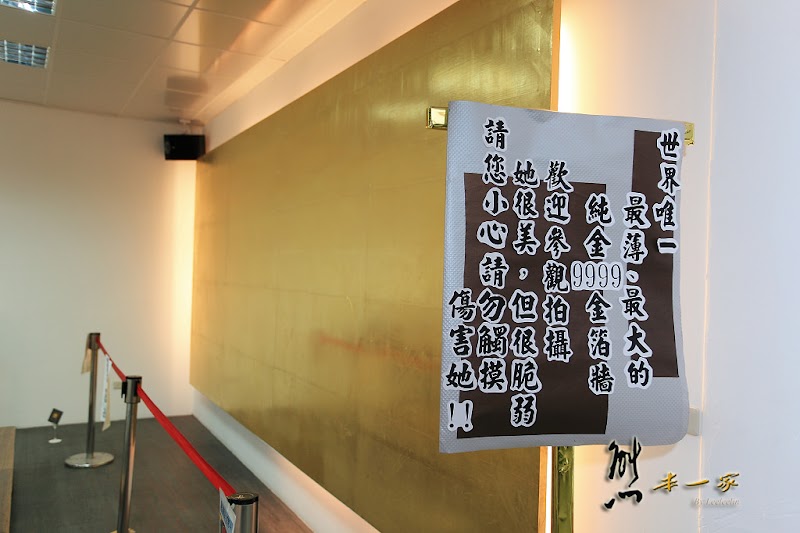 世界唯一
最薄、最大的
純金9999金箔牆
歡迎參觀拍攝
她很美，但很脆弱
請您小心請勿觸摸
傷害她!!
熊
米一家